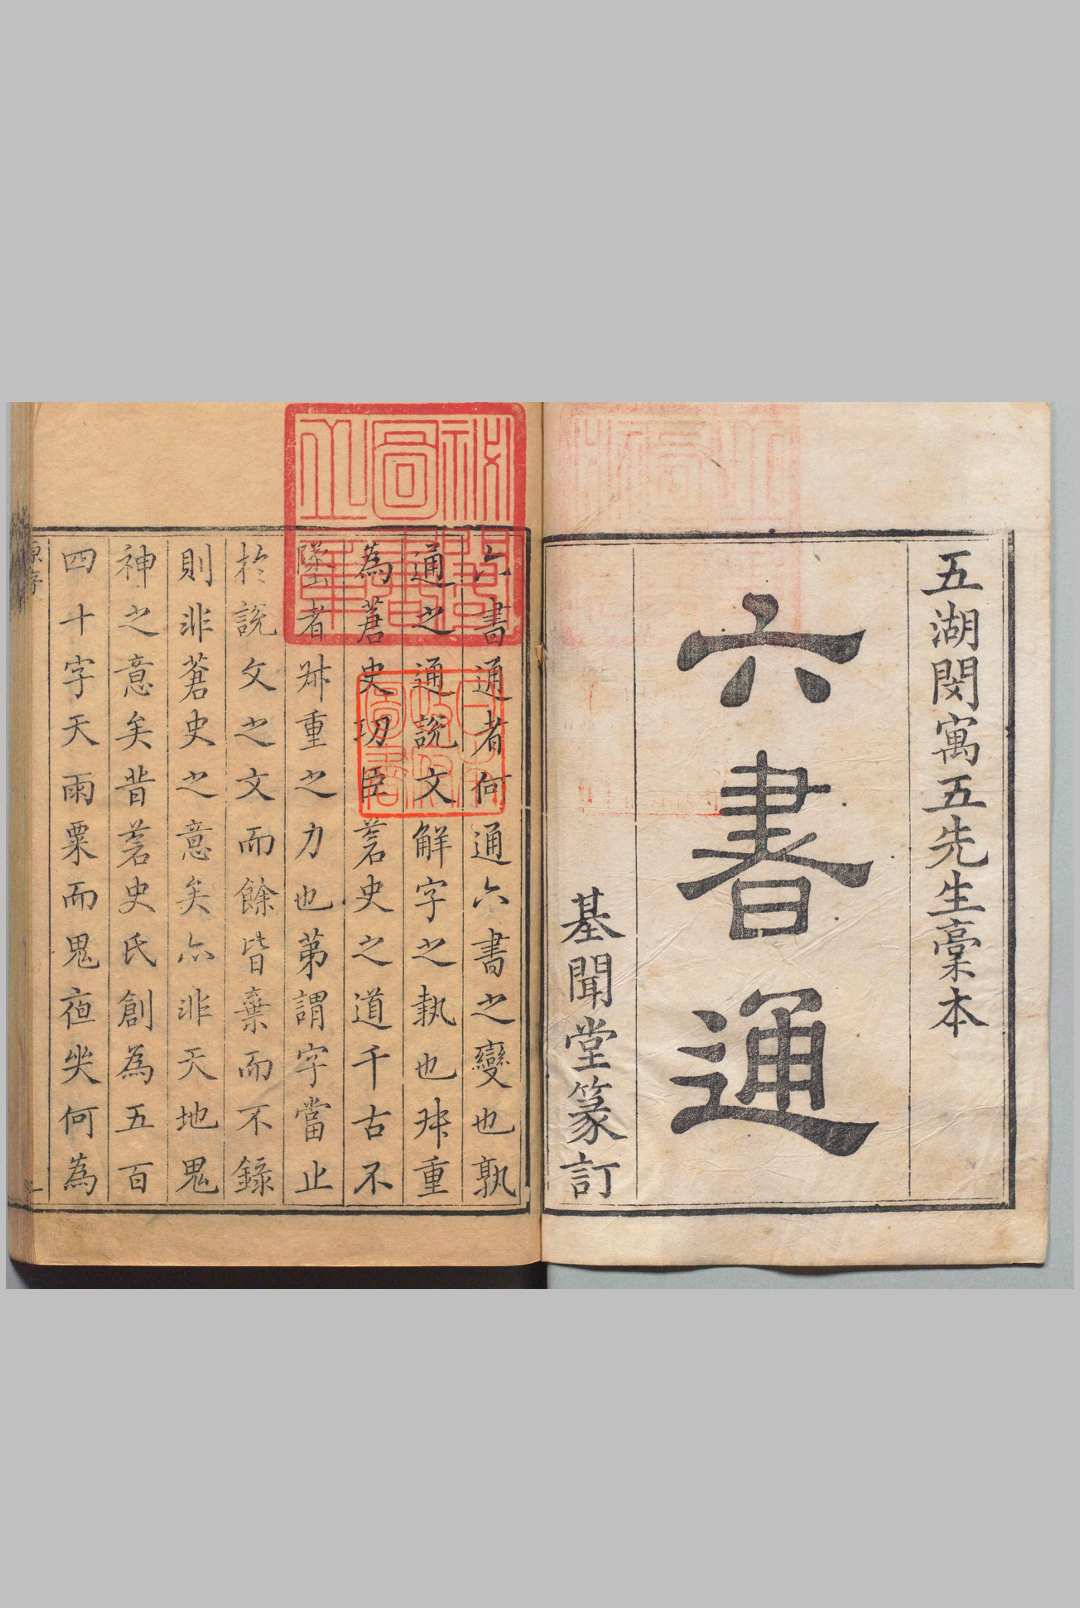 五湖閔寓五先生稾本
六書通
基聞堂篆訂
六書通者何通六書之變也孰
通之通說文解字之執也叔重
為蒼史功臣蒼史之道千古不
墜者叔重之力也第謂字當止
於說文之文而餘皆棄而不錄
則非蒼史之意矣亦非天地鬼
神之意矣昔蒼史氏創為五百
四十字天雨粟而鬼夜哭何為
原序